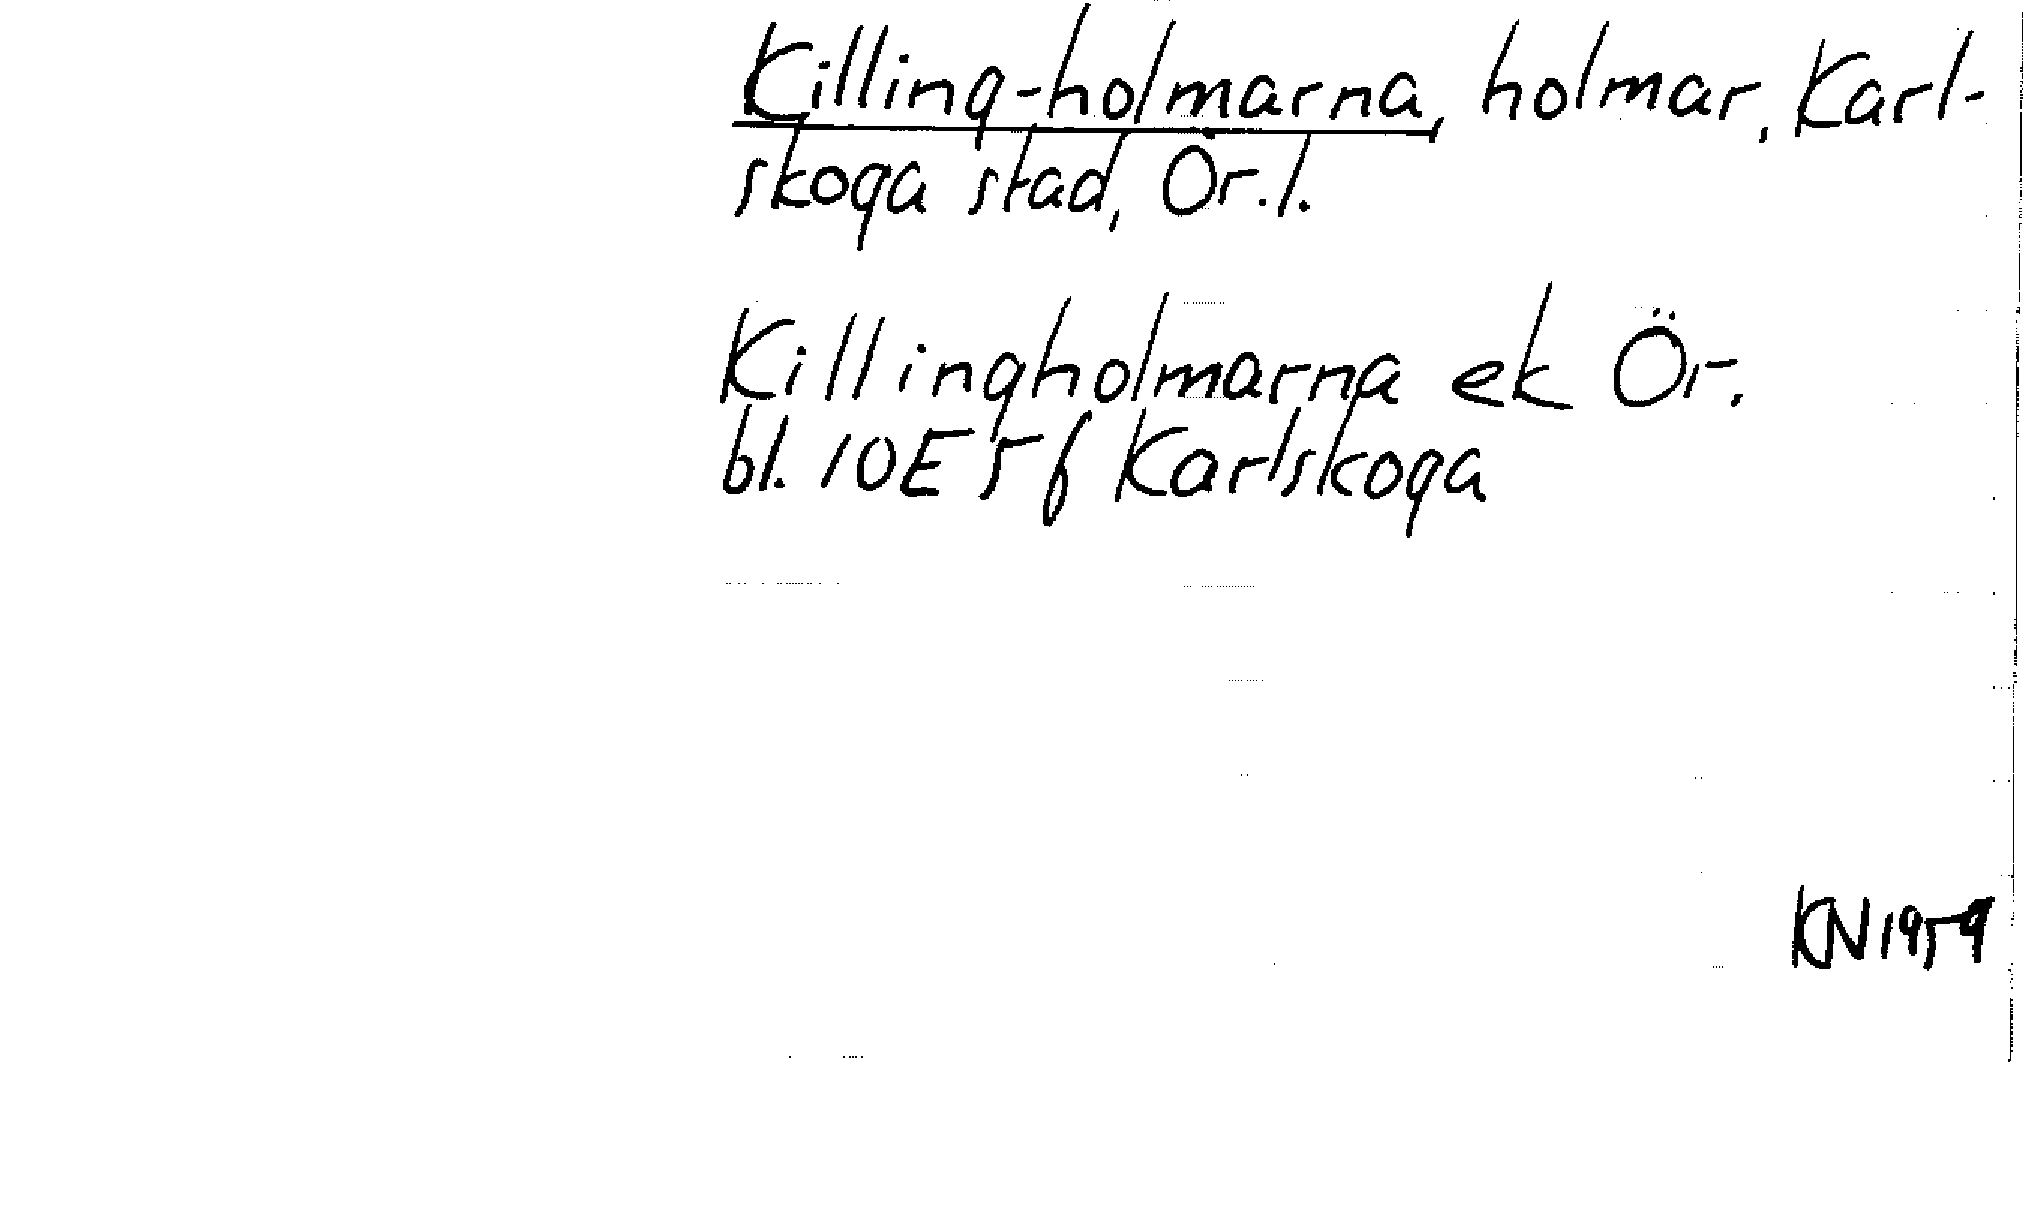 Killing-holmarna, holmar, Karl-
skoga stad, Ör.l.
Killingholmarna ek Ör.
bl. 10E5f Karlskoga
KN 1959